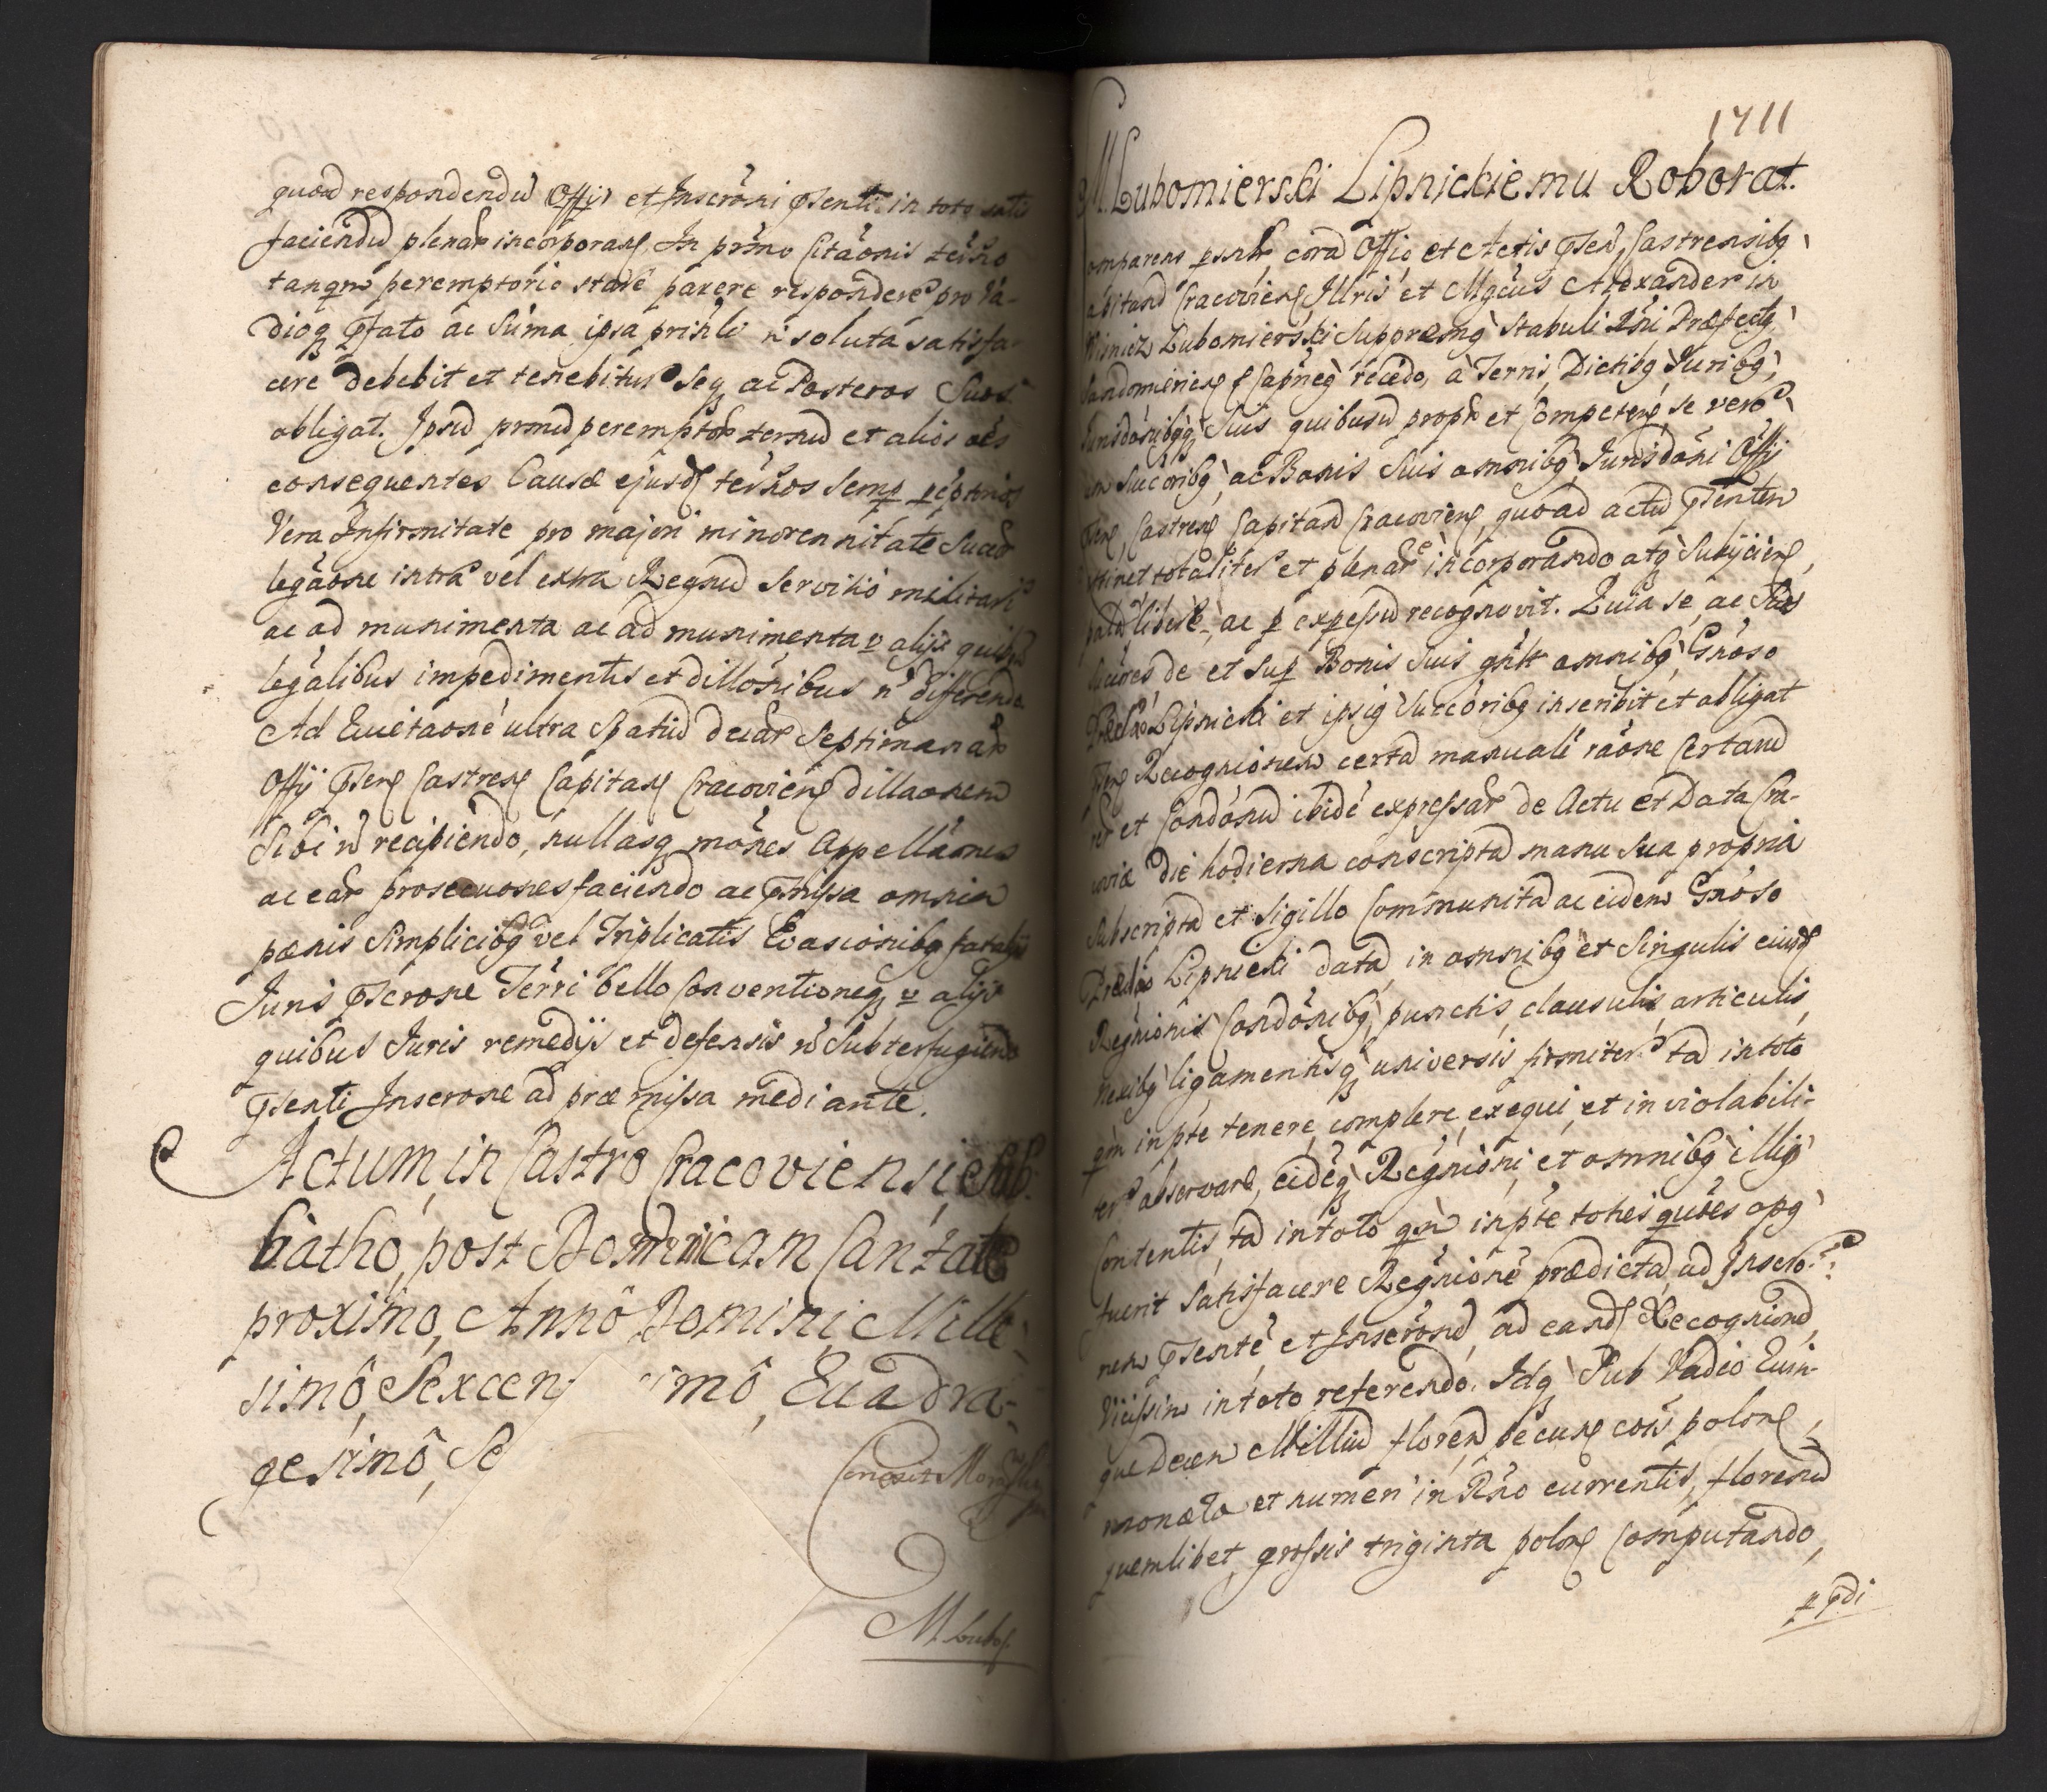 quoad respondendũ Offij et Inscrõni pnti in toto satis
faciendũ plenar incorporans, In prĩmo Citãonis termo
tanqm peremptorie stare parere respondere pro Va-
dioq pfato ac Sũma ipsa prinli ñ soluta satisfa-
cere debebit et tenebitur Seq ac Posteros Suos
obligat. Ipsũ prmũ peremptor ternũ et alios oẽs
consequentes Causæ ejusd termos Semp
Vera Infirmitate pro majori minorennitate Succor
legãone intra vel extra Regnũ Servitio militari
ac ad munimenta ac ad munimenta v alijs quibus
legalibus impedimentis et dillõnibus ñ differendo
Ad Evictaonẽ ultra Spatiũ duar Septimanar
Offij psen Castren Capitan Cracovien dillaonem
Sibi ñ recipiendo, nullasq mõnes Appellãones
ac ear prosecuones faciendo ac pmissa omnia
pœnis Simplicibq vel Triplicatis Evasionibq
Juris pscrone Terri bello Conventioneq v alijs
quibus Juris remedijs et defensis ñ Subterfugiendo
psenti Inscrone ad præmissa mediante.
Actum, in Castro Cracoviensi, Sab-
batho, post Dominicam Cantate
proximo, Annô Domini, Mille-
simô, Sexcen imô, Quadra-
gesimô, Se
M Lubo
1711
M. Lubomierski Lipnickiemu Roborat.
omparens psnlr corã Offio et Actis psen, Castrensibq
apitand Cracovien, Illris et Mgcus Alexander in
Wisnicz Lubomierski Supremq Stabuli Rni Præfectq
Sandomirien Capneq recedo, à Terris, Dictibq Juribq
Jurisdonibqq Suis quibusũ propr et Competen, se vero
cum Succoribq, ac Bonis Suis omnibq Jurisdõni Offij
psen, Castren Capitan Cracovien, quoad actũ psentem
ttinet totaliter et plenar incorporando atq Subijcien,
palã liberè, ac p expessũ recognovit. Quia se, ac Suos
Succres de et Sup Bonis Suis gnlr omnibq, Gnõso
Prædño Lipnicki et ipsiq Succoribq inscribit et obligat
psen Recognionem certã manuali rãone Certarũ
rer et Condonũ ibidẽ expressar de Actu et Data Cra-
coviæ die hodierna conscriptã manu Sua propria
Subscriptã et Sigillo Communitã ac eidem Gnõso
Prædño Lipnicki datã in omnibq et Singulis eiusd
Regnionis Condõnibq, punctis, clausulis, articulis,
nexibq ligamentisq universis firmiter tã in toto
qm in pte tenere, complere, exequi, et inviolabili-
ter observare, eidẽq Regnioni, et omnibq illiq
Contentis, tã in toto qm in pte toties quoties opq
fuerit Satisfacere Regnionẽ prædictã, ad Inscro-
nem psentẽ et Inscronũ, ad eand Recognionũ,
Vicissim in toto referendo. Idq Sub Vadio Quin-
quedecem Milliũ florẽn pecuniæ coĩs polon,
monæta et numeri in Rno currentis, florenũ
quemlibet, grossis triginta polon Computando,